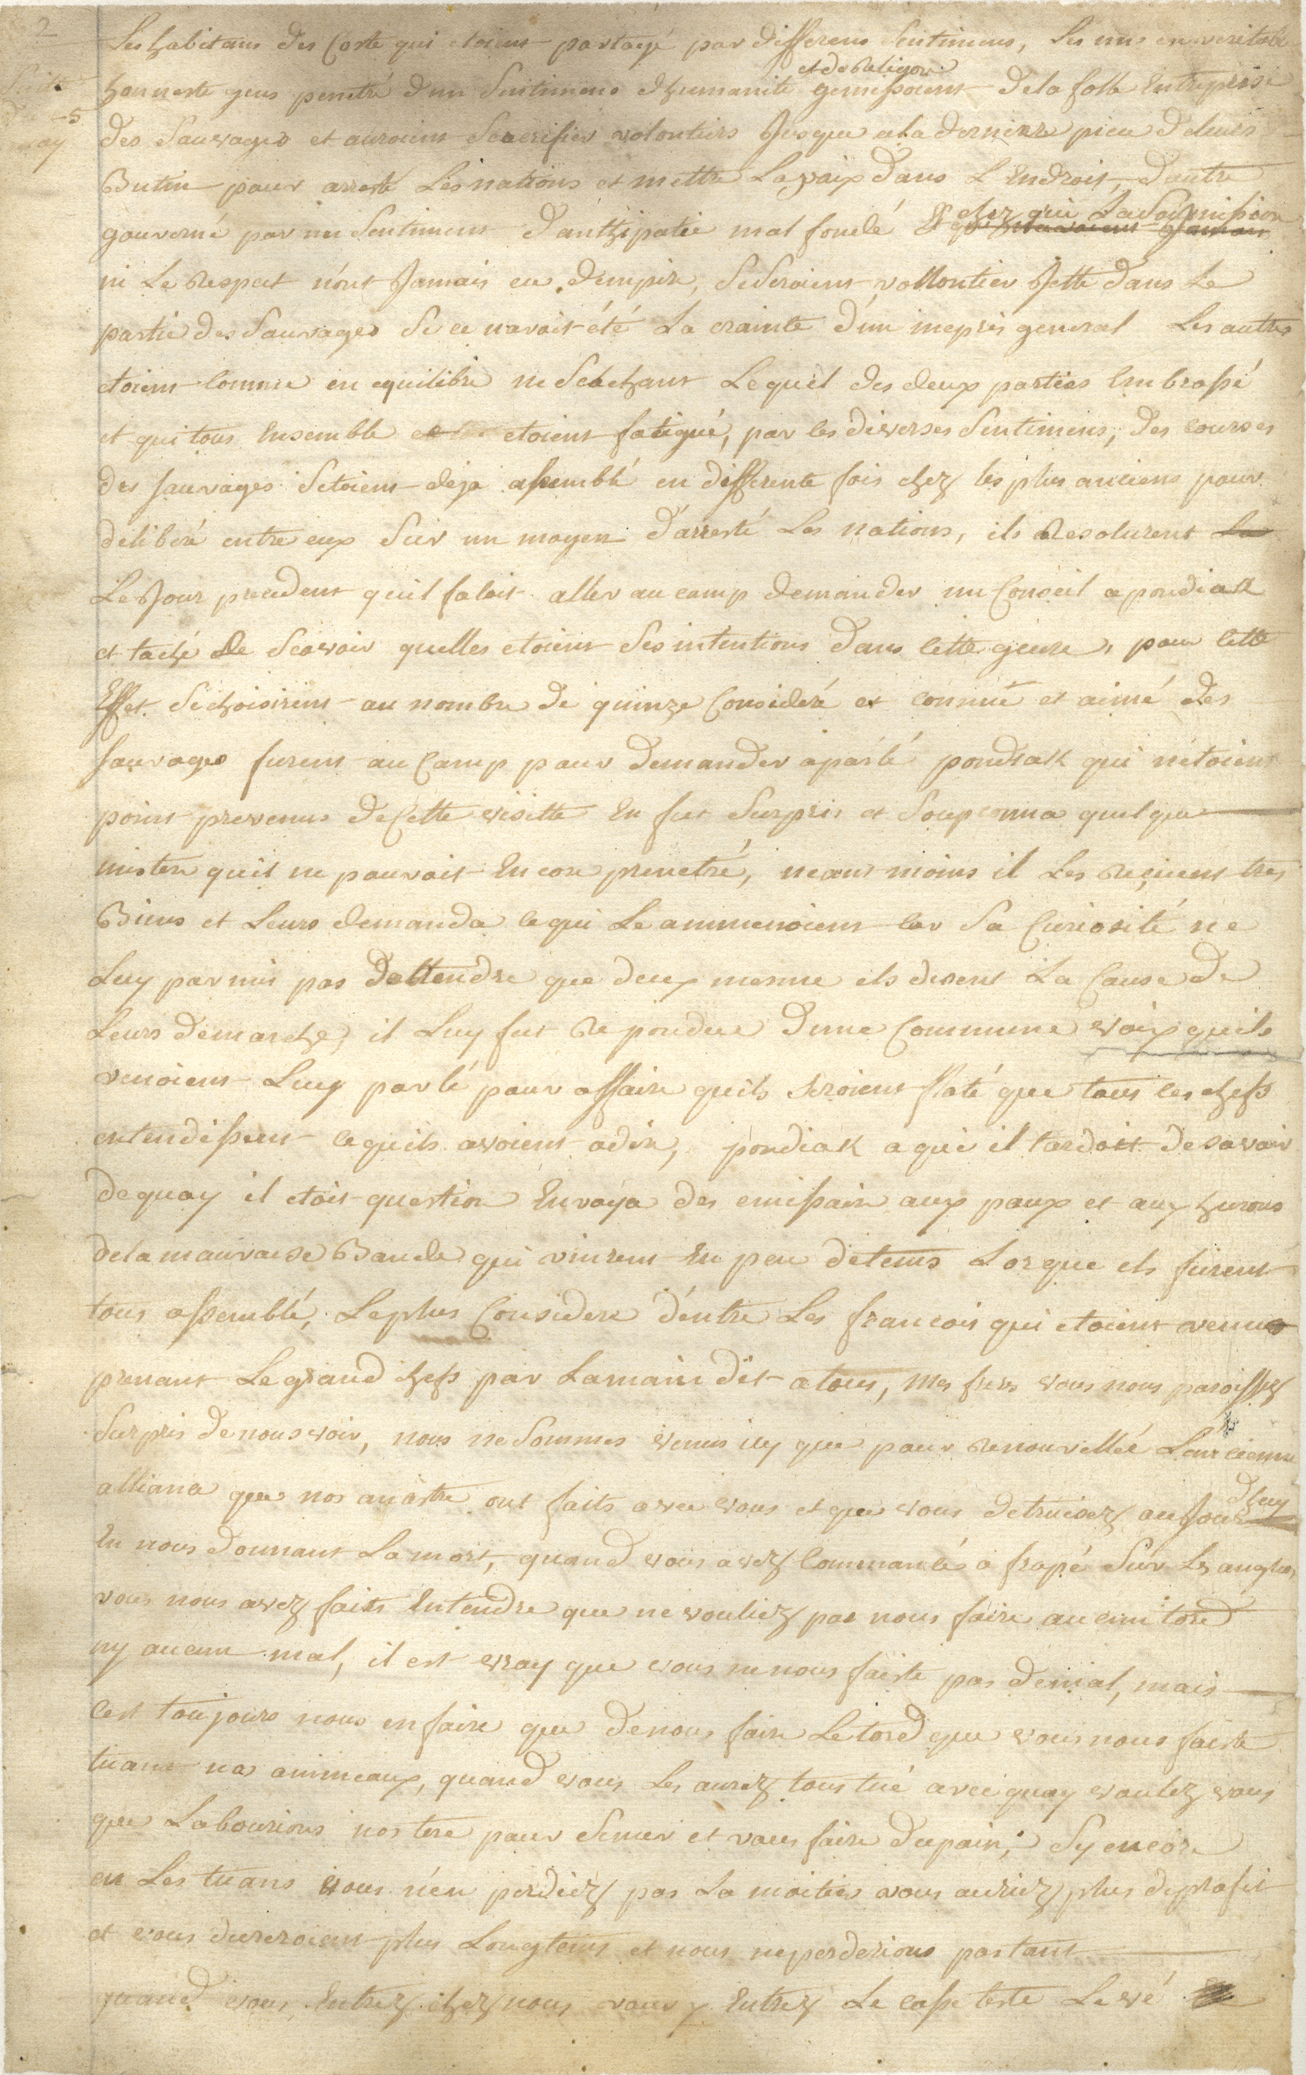 2
Les habitans des Coste qui etoient partagé par differens Sentimens, Les uns en veritable
et de Religion
honneste gens penetré d'un Sentimens d'humanité gemissoient de la folle Entreprise
Suitte
des Sauvages et auroient Sacrifier volontiers Jusque a la derniere piece de leurs
5
may
Butin pour aresté Les nations et mettre La paix dans L'Endroit, d'autre
chez qui La Soumission
gouverné par un Sentiment d'anthipatie mal fondé Et
ni Le Respect n'ont Jamais eu d'empire, Se Seroient vollontier Jetté dans Le
partie des Sauvages Si ce n'avoit été La crainte d'un mepris general Les autres
etoient Comme en equilibre ne Sachant Lequel des deux parties Embrassé
et qui tous Ensemble etoient fatigué, par les diverses Sentimens, des Courses
des Sauvages S'etoient deja assemblé en differente fois chez les plus anciens pour
deliberé entre eux Sur un moyen d'aresté Les nations, ils Resolurent
Le Jour precedent qu'il faloit aller au camp demander un Conseil a pondiak
et taché De Scavoir quelles etoient Ses intentions dans Cette guere, pour Cette
Effet Se choisirent au nombre de quinze Consideré et connüe et aimé des
Sauvages furent au Camp pour demander a parlé pondiak qui n'etoient
point prevenus de Cette visitte En fut Surpris et Soupconna quelque
mistere quil ne pouvoit Encore penetré, neant moins il Les Recurent tres
Biens et Leurs demanda ce qui Le ammenoient car Sa Curiosité ne
Luy parmis pas Dattendre que deux mesme ils disent La Cause de
Leurs demarche, il Luy fut Repondue d'une Commune voix quils
venoient Luy parlé pour affaire quils Seroient flaté que tous les chefs
entendissent ce quils avoient a dire, pondiak a qui il tardoit de Savoir
de quoy il etoit question Envoya des emissaire aux poux et aux hurons
de la mauvaise Bande qui vinrent En peu de tems Lorque ils furent
tous assemblé, Le plus Considere d'entre Les francois qui etoient venus
prenant Le grand chefs par La main dit a tous, mes freres vous nous paroissez
Surpris de nous voir, nous ne Sommes venus icy que pour Renouvellé L'ancienne
alliance que nos ancestre ont faits avec vous et que vous detruisez au Jour
d'huy
En nous donnant La mort, quand vous avez Commancé a frapé Sur Les anglois
vous nous avez faits Entendre que ne vouliez pas nous faire aucun tord
ny aucun mal, il est vray que vous ne nous faiste pas de mal, mais
Cest toujours nous en faire que de nous faire Le tord que vous nous faiste
tuant nos animeaux, quand vous Les aurez tous tué avec quoy voulez vous
que Labourions nos tere pour Semer et vous faire du pain; Sy encore
en Les tuans vous n'en perdiez pas La moitiés vous auriez plus de profit
et vous dureroient plus Longtems et nous ne perderions pas tant
quand vous Entrez chez nous vous y Entrez Le casse teste Levé